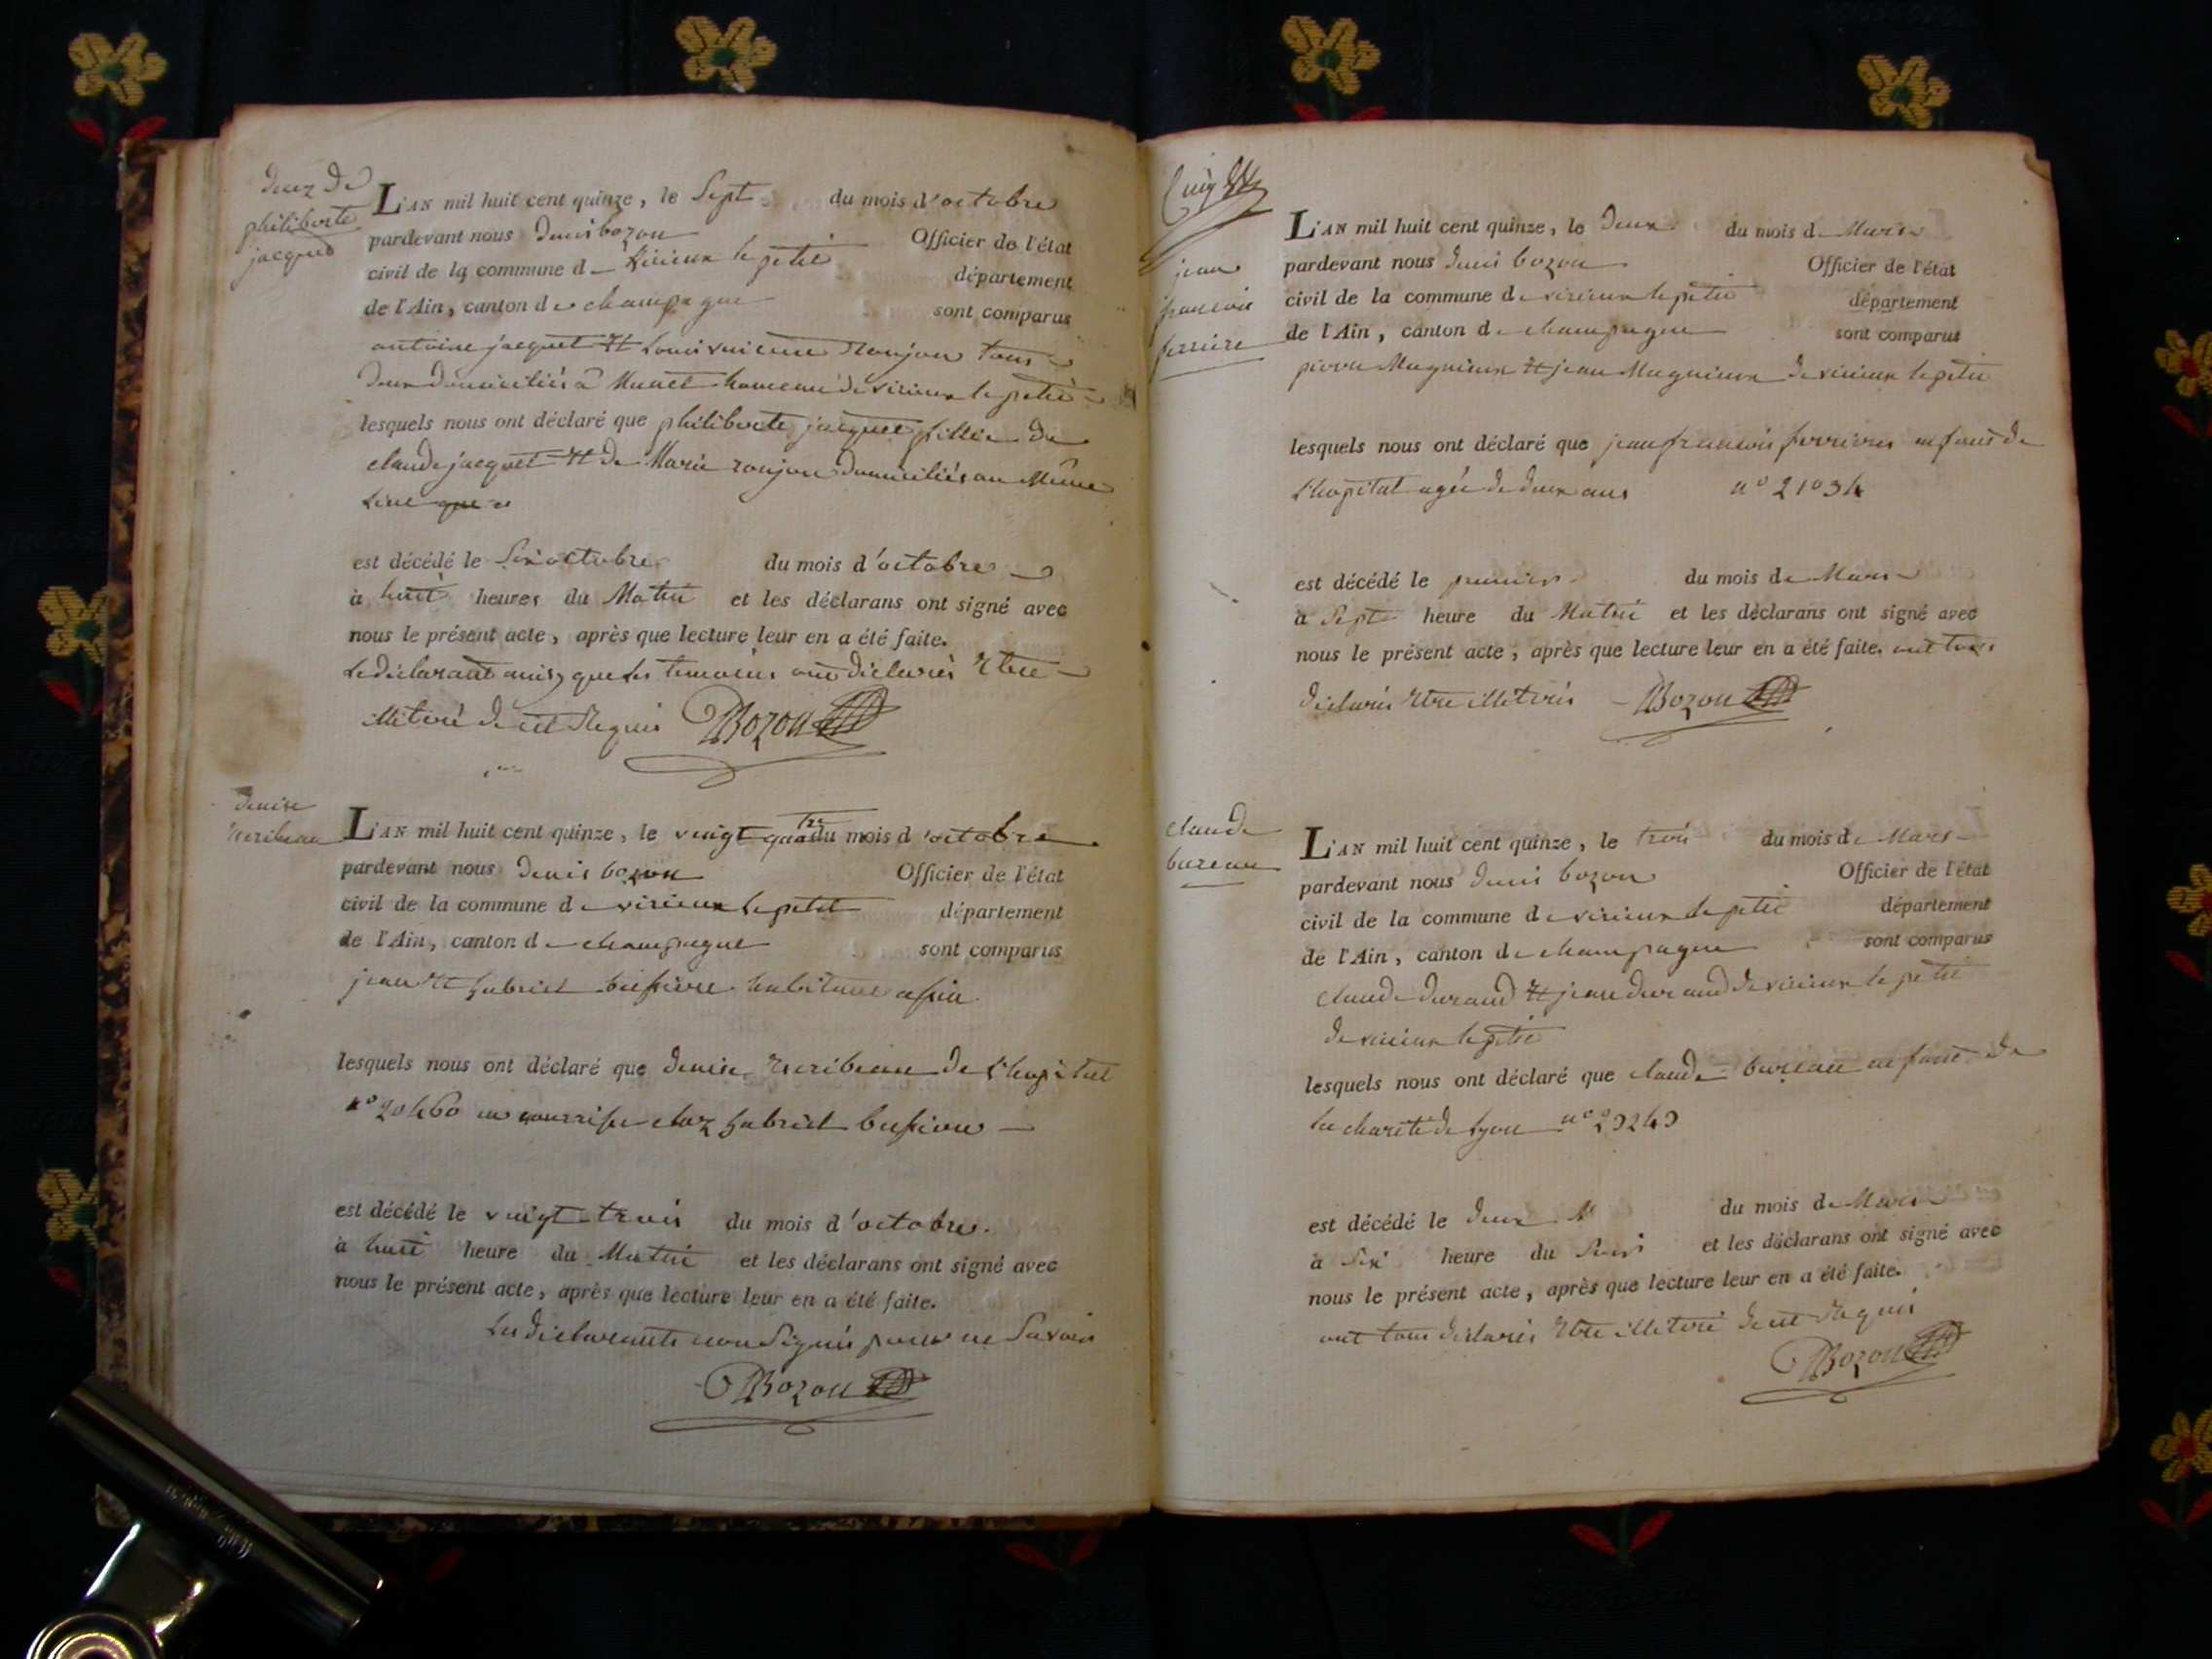 decez de
philiberte
jacquet
L'AN mil huit cent quinze, le Sept du mois d'octobre
pardevant nous denis bozon Officier de l'état
civil de la commune de virieux le petit département
de l'Ain, canton de champagne sont comparus
antoine jacquet et Roujon tous
deux domiciliés à Munet hameau de virieux le petit
lesquels nous ont déclaré que philiberte jacquet fillie de
claude jacquet et de Marie roujon domiciliés au Même
Lieu que
est décédé le Six octobre du mois d'octobre
à huit heures du Matin et les déclarans ont signé avec
nous le présent acte, après que lecture leur en a été faite.
Le déclarant ainsy que les temoins ont déclarés Etre
illiteré de cet Requis DBozon
denise
L'AN mil huit cent quinze, le vingt quatre du mois d'octobre
pardevant nous denis bozon Officier de l'état
civil de la commune de virieux le petit département
de l'Ain, canton de champagne sont comparus
jean et gabriel habitant
lesquels nous ont déclaré que denise de L'hopital
n° 20460 en nourrisse chez gabriel
est décédé le vingt trois du mois d'octobre.
à huit heure du Matin et les déclarans ont signé avec
nous le présent acte, après que lecture leur en a été faite.
Les déclarants non Signés pour ne Savoir
DBozon
jean
francois
ferriere
L'AN mil huit cent quinze, le deux du mois de Mars
pardevant nous denis bozon Officier de l'état
civil de la commune de virieux le petit département
de l'Ain, canton de champagne sont comparus
pierre Magnieux et jean Magnieux de virieux le petit
lesquels nous ont déclaré que jean francois ferrieres enfant de
L'hopital agée de deux ans n° 21034
est décédé le premier du mois de Mars
à Sept heure du Matin et les déclarans ont signé avec
nous le présent acte, après que lecture leur en a été faite. ont tous
déclarés Etre illiterés DBozon
claude
bureau
L'AN mil huit cent quinze, le trois du mois de Mars
pardevant nous denis bozon Officier de l'état
civil de la commune de virieux le petit département
de l'Ain, canton de champagne sont comparus
claude durand et jean durand de virieux le petit
de virieux le petit
lesquels nous ont déclaré que claude bureau enfant de
la charité de Lyon n°
est décédé le deux M du mois de Mars
à Six heure du Soir et les déclarans ont signé avec
nous le présent acte, après que lecture leur en a été faite.
ont tous déclarés Etre illiteré de cet Requis
DBozon